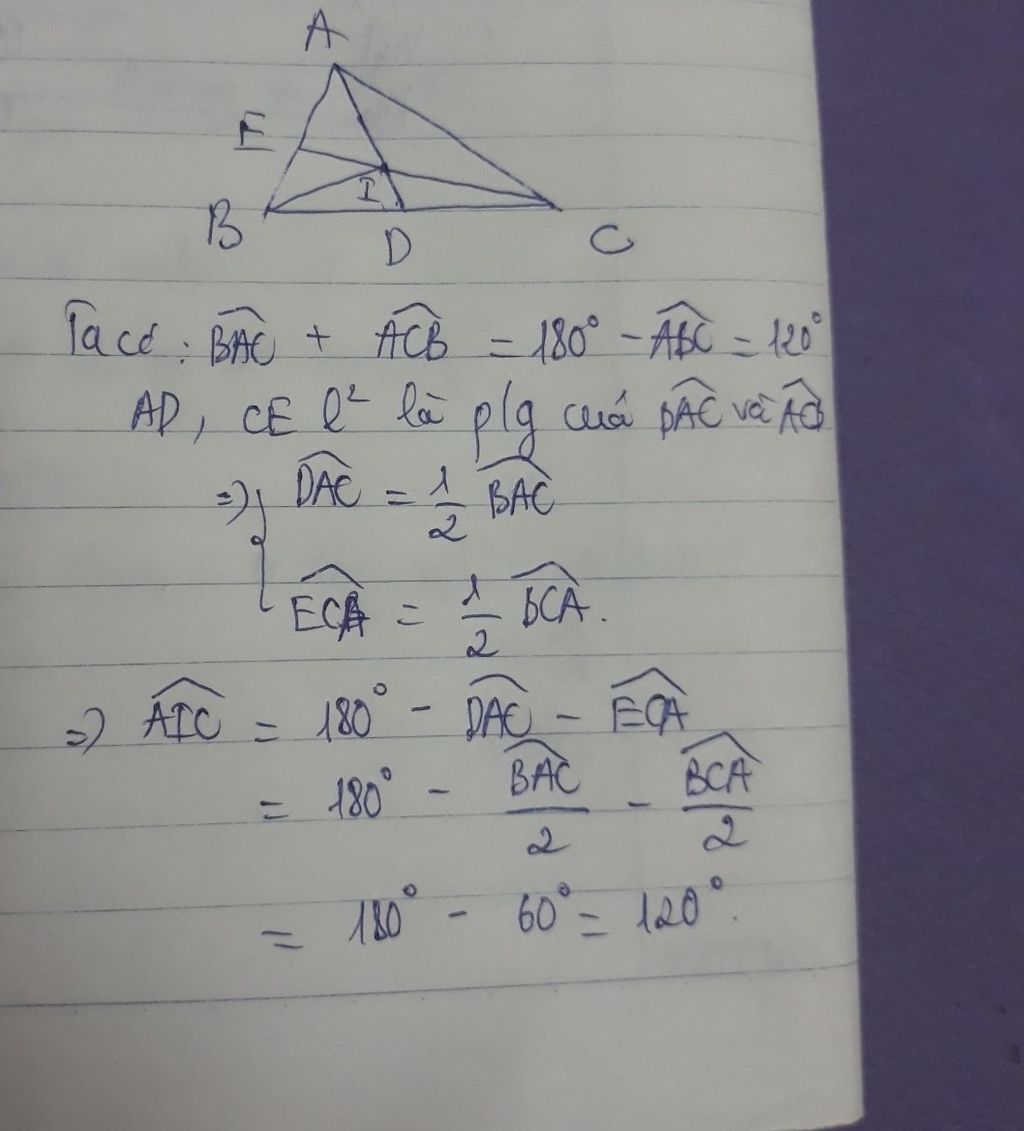 A
E
I
B
D
C
Ta có : \widehat{BAC} + \widehat{ACB} = 180° - \widehat{ABC} = 120°
AD, CE l² là p/g cuả \widehat{BAC} và \widehat{ACB}
=> { \widehat{DAC} = \frac{1}{2} \widehat{BAC}
\widehat{ECA} = \frac{1}{2} \widehat{BCA}.
=> \widehat{AIC} = 180° - \widehat{DAC} - \widehat{ECA}
= 180° - \frac{\widehat{BAC}}{2} - \frac{\widehat{BCA}}{2}
= 180° - 60° = 120°.